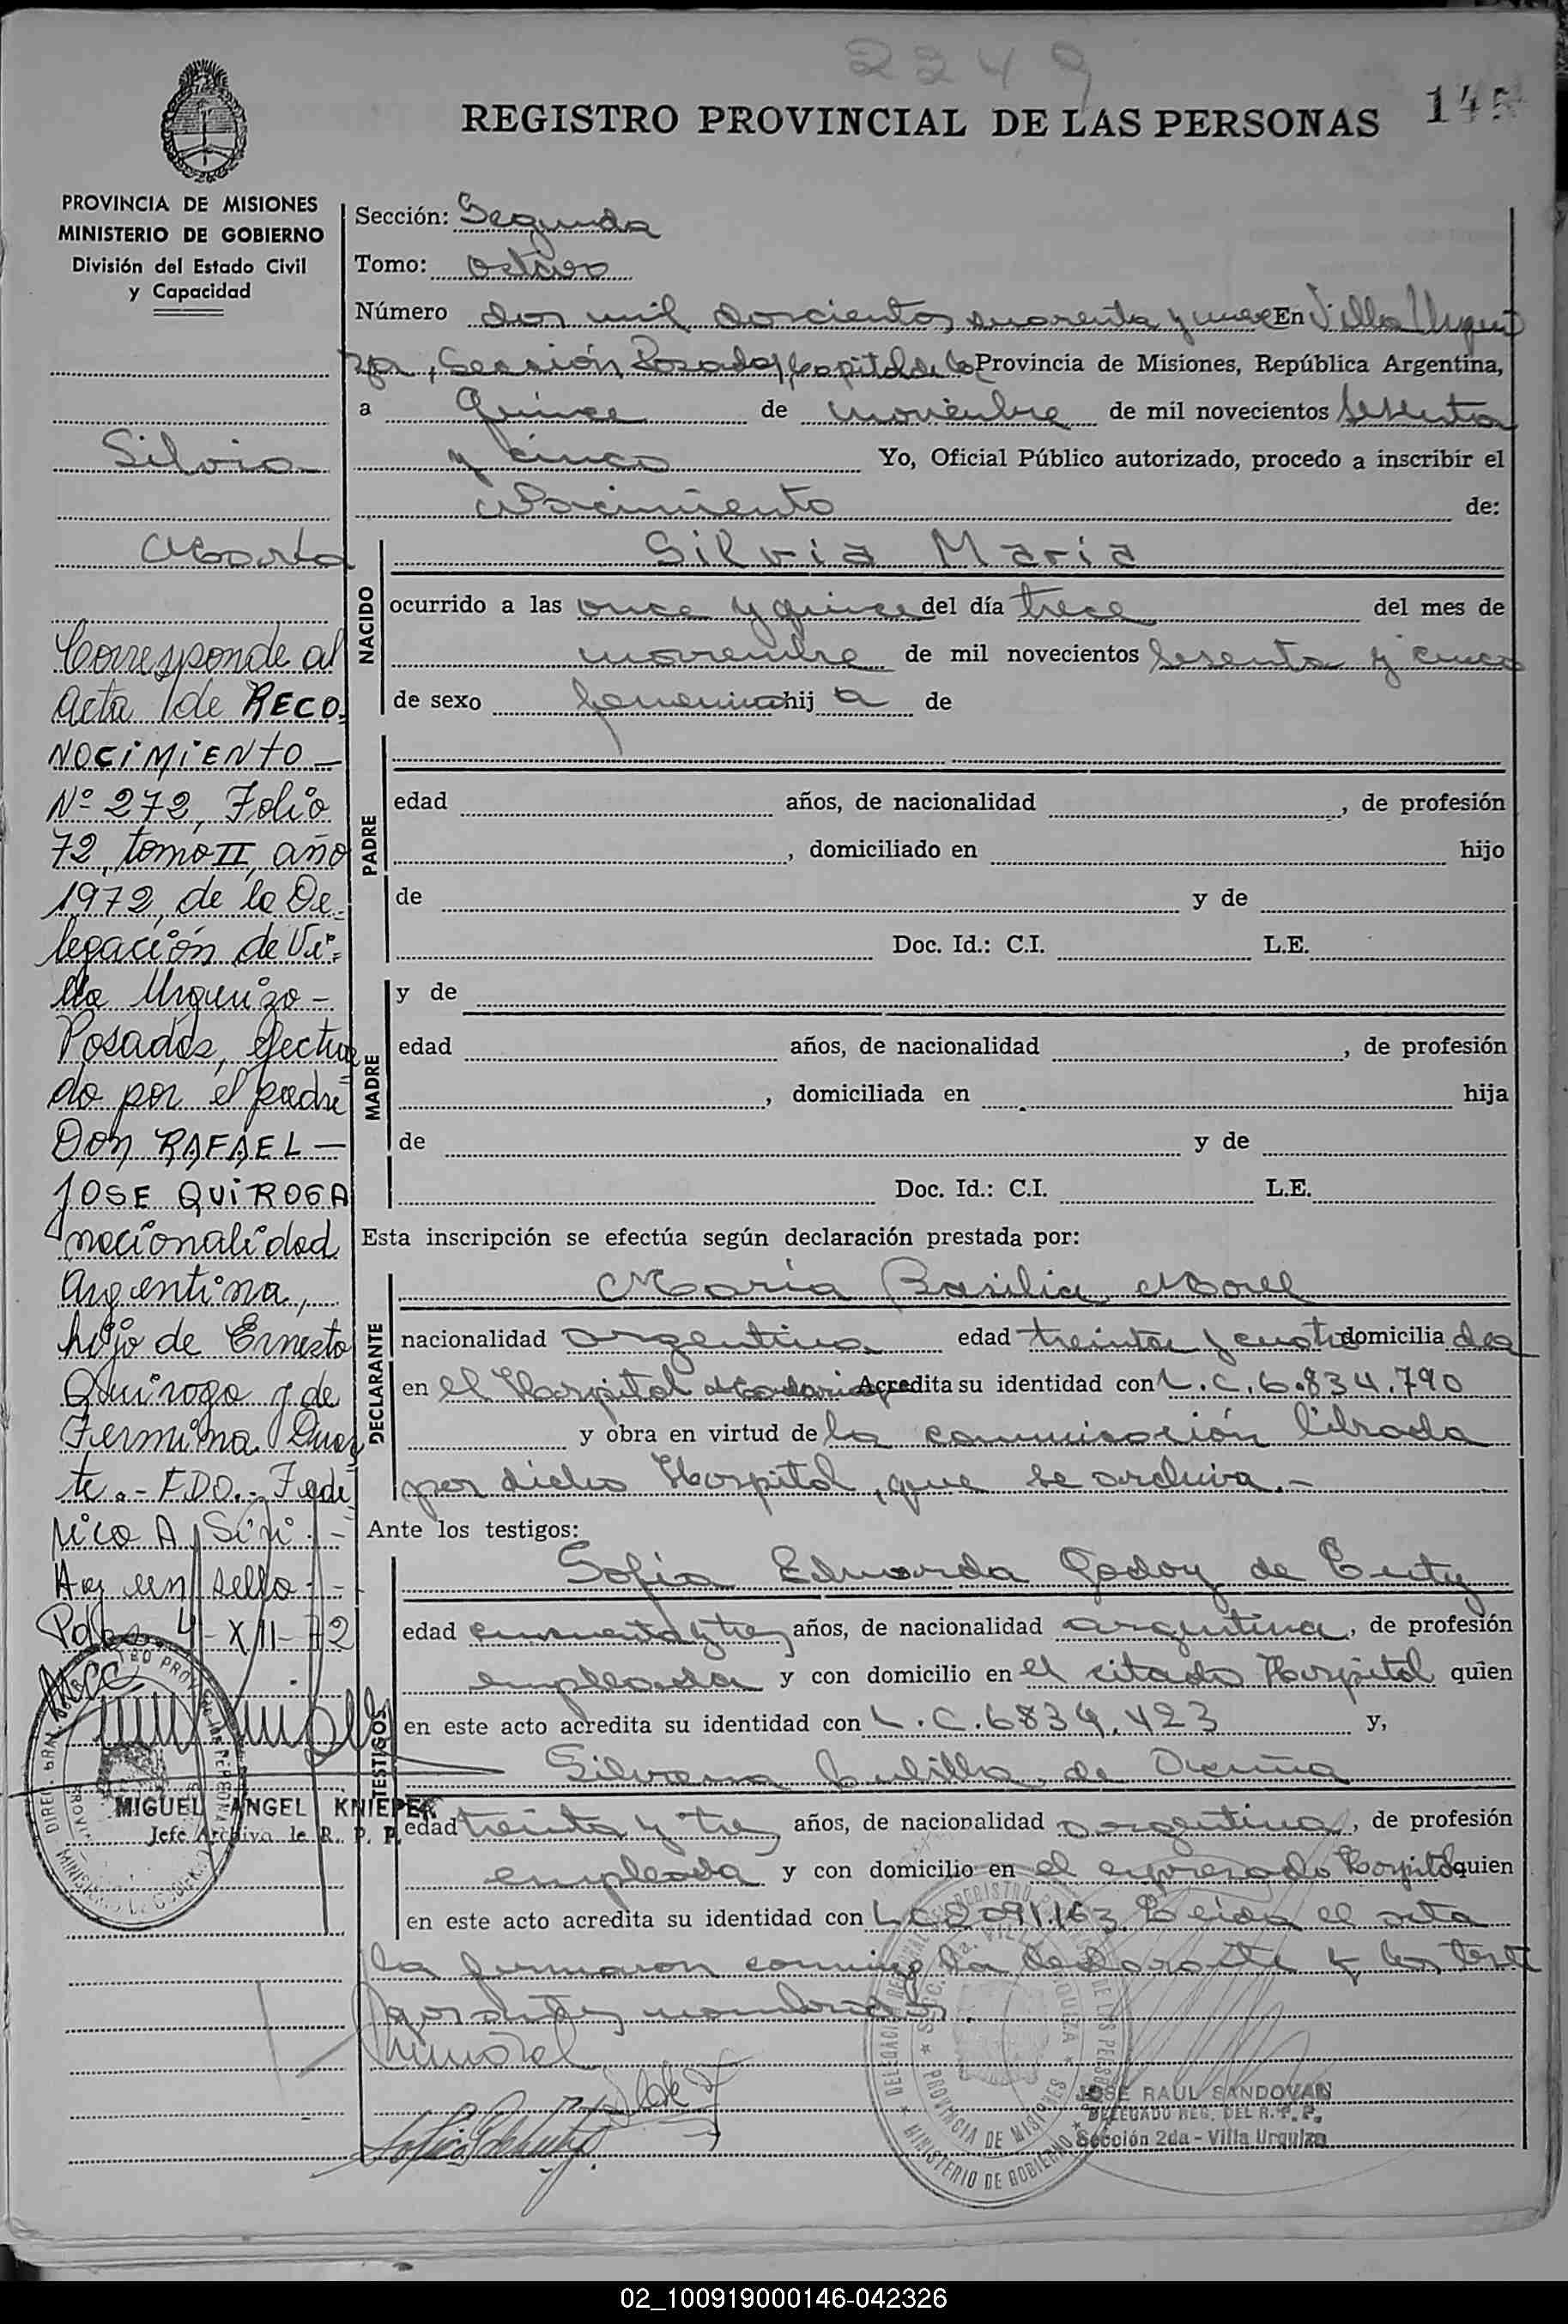 2249
REGISTRO PROVINCIAL DE LAS PERSONAS 145
PROVINCIA DE MISIONES
MINISTERIO DE GOBIERNO
División del Estado Civil
y Capacidad
Silvia
María
Corresponde al
acta de RECO
NOCIMIENTO —
Nº 272, Folio
72, tomo II, año
1972, de la De-
legación de Vi-
lla Urquiza -
Posadas, efectua
do por el padre
Don RAFAEL —
JOSE QUIROGA
nacionalidad
Argentina,
hijo de Ernesto
Quiroga y de
Fermina Duar
te.- FDO.- Fede
rico A. Siri -
Hay un sello.-
Pdas 4-XII-72
MIGUEL ANGEL KNIEPER
Jefe Archivo de R. P. P.
Sección: Segunda
Tomo: octavo
Número dos mil doscientos cuarenta y nueve En Villa Urqui
za, Sección Posadas, Capital de la Provincia de Misiones, República Argentina,
a Quince de noviembre de mil novecientos sesenta
y cinco Yo, Oficial Público autorizado, procedo a inscribir el
Nacimiento de:
NACIDO
Silvia María
ocurrido a las once y quince del día trece del mes de
noviembre de mil novecientos sesenta y cinco
de sexo femenino hij a de
PADRE
edad años, de nacionalidad , de profesión
, domiciliado en hijo
de y de
Doc. Id.: C.I. L.E.
MADRE
y de
edad años, de nacionalidad , de profesión
, domiciliada en hija
de y de
Doc. Id.: C.I. L.E.
Esta inscripción se efectúa según declaración prestada por:
DECLARANTE
María Basilia Morel
nacionalidad argentina edad treinta y cuatro domicilia da
en el Hospital Madariaga Acredita su identidad con L.C.6.834.790
y obra en virtud de la comunicación librada
por dicho Hospital, que se archiva.-
Ante los testigos:
TESTIGOS
Sofia Eduarda Godoy de
edad cincuenta y tres años, de nacionalidad argentina, de profesión
empleada y con domicilio en el citado Hospital quien
en este acto acredita su identidad con L.C.6834.423 y,
Silvana de
edad treinta y tres años, de nacionalidad argentina, de profesión
empleada y con domicilio en el expresado Hospital quien
en este acto acredita su identidad con L.C.2091.163. Leída el acta
la firmaron conmigo la declarante y los testi
gos
JOSE RAUL SANDOVAL
DELEGADO REG. DEL R. P. P.
Sección 2da - Villa Urquiza
DELEGACION REGISTRO DE LAS PERSONAS
PROVINCIA DE MISIONES
MINISTERIO DE GOBIERNO
02_100919000146-042326